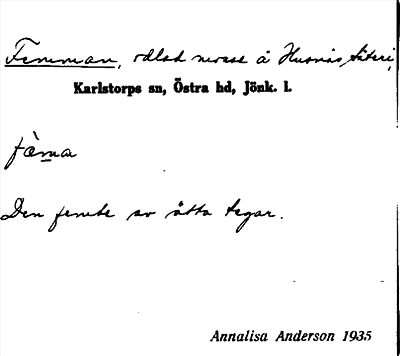 Femman, odlad mosse å Husnäs säteri,
Karlstorps sn, Östra hd, Jönk. l.
fæ̀ma
Den femte av åtta tegar.
Annalisa Anderson 1935